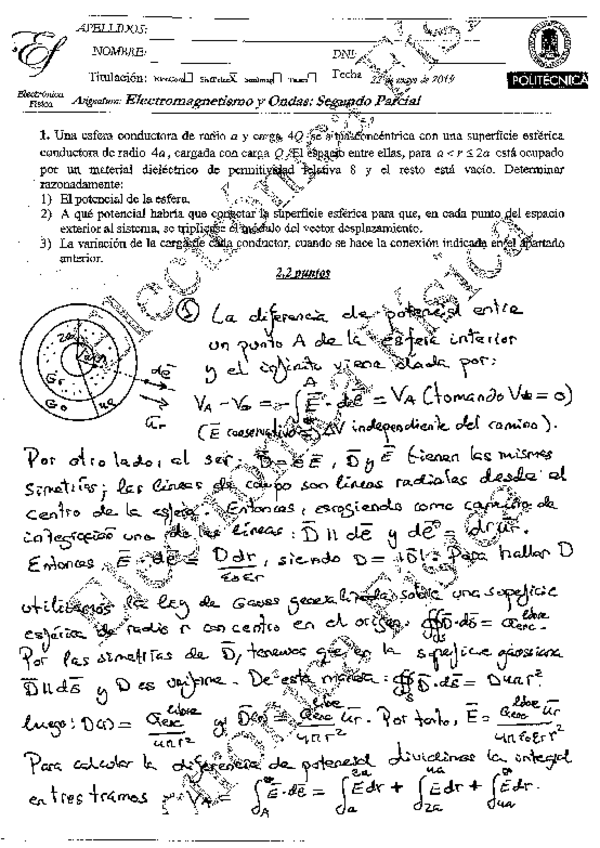 APELLIDOS:
NOMBRE: DNI:
Titulación: Fecha 22 de mayo de 2019
POLITÉCNICA
Electrónica
Física
Asignatura: Electromagnetismo y Ondas: Segundo Parcial
1. Una esfera conductora de radio a y carga 4Q se sitúa concéntrica con una superficie esférica
conductora de radio 4a, cargada con carga Q. El espacio entre ellas, para a < r ≤ 2a está ocupado
por un material dieléctrico de permitividad relativa 8 y el resto está vacío. Determinar
razonadamente:
1) El potencial de la esfera.
2) A qué potencial habría que conectar la superficie esférica para que, en cada punto del espacio
exterior al sistema, se triplicase el módulo del vector desplazamiento.
3) La variación de la carga de cada conductor, cuando se hace la conexión indicada en el apartado
anterior.
2,2 puntos
① La diferencia de potencial entre
un punto A de la esfera interior
y el infinito viene dada por:
V_A - V_∞ = -∫ E̅·dl̅ = V_A (tomando V_∞ = 0)
(E̅ conservativo ⇒ ΔV independiente del camino).
Por otro lado, al ser: D̅ = εE̅, D̅ y E̅ tienen las mismas
simetrías; las líneas de campo son líneas radiales desde el
centro de la esfera. Entonces, escogiendo como camino de
integración una de las líneas: D̅ || dl̅ y dl̅ = dr u̅r.
Entonces E̅·dl̅ = D dr / ε₀εr, siendo D = |D̅|. Para hallar D
utilizamos la ley de Gauss generalizada sobre una superficie
esférica de radio r con centro en el origen. ∯ D̅·ds̅ = Q_enc^libre
Por las simetrías de D̅, tenemos que en la superficie gaussiana
D̅ || ds̅ y D es uniforme. De esta manera: ∯ D̅·ds̅ = D4πr²
luego: D(r) = Q_enc^libre / 4πr² y D̅(r) = Q_enc^libre / 4πr² u̅r. Por tanto, E̅ = Q_enc^libre u̅r / 4πε₀εr r²
Para calcular la diferencia de potencial dividimos la integral
en tres tramos: V_A = ∫_A^∞ E̅·dl̅ = ∫_a^2a E dr + ∫_2a^4a E dr + ∫_4a^∞ E dr.